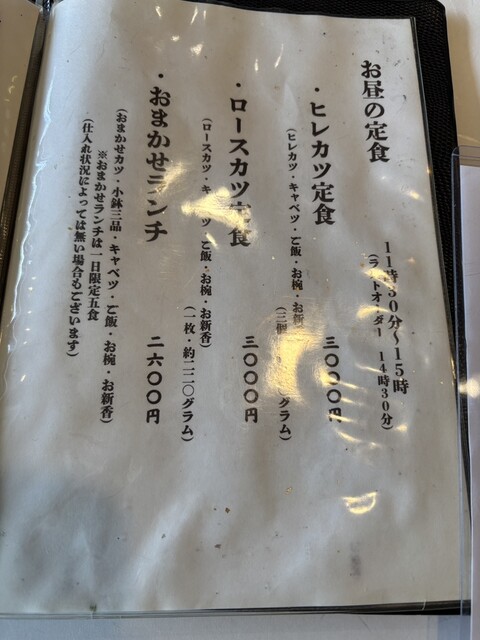 お昼の定食
11時30分〜15時
(ラストオーダー 14時30分)
・ヒレカツ定食 三〇〇〇円
(ヒレカツ・キャベツ・ご飯・お椀・お新
グラム)
・ロースカツ定食 三〇〇〇円
(ロースカツ・キャベツ・ご飯・お椀・お新香)
(一枚・約二二〇グラム)
・おまかせランチ 二六〇〇円
(おまかせカツ・小鉢三品・キャベツ・ご飯・お椀・お新香)
※おまかせランチは一日限定五食
(仕入れ状況によっては無い場合もございます)